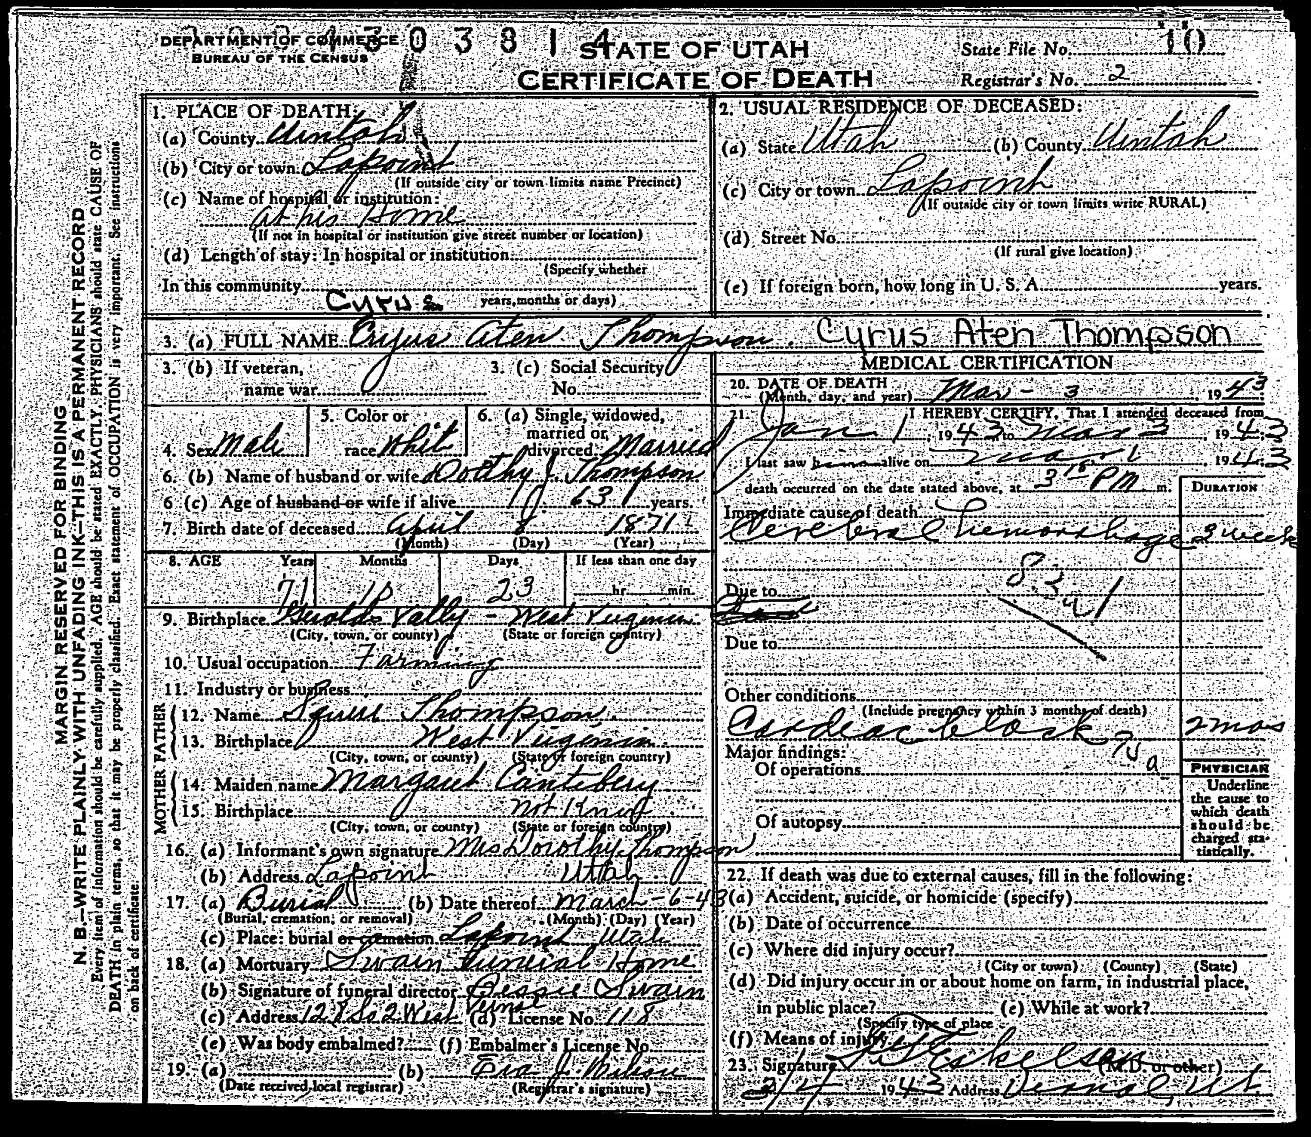 DEPARTMENT OF COMMERCE
BUREAU OF THE CENSUS
STATE OF UTAH
CERTIFICATE OF DEATH
State File No. 10
Registrar's No. 2
MARGIN RESERVED FOR BINDING
N. B.—WRITE PLAINLY, WITH UNFADING INK—THIS IS A PERMANENT RECORD
Every item of information should be carefully supplied. AGE should be stated EXACTLY. PHYSICIANS should state CAUSE OF
DEATH in plain terms, so that it may be properly classified. Exact statement of OCCUPATION is very important. See instructions
on back of certificate.
1. PLACE OF DEATH:
(a) County Uintah
(b) City or town Lapoint
(If outside city or town limits name Precinct)
(c) Name of hospital or institution:
at his Home
(If not in hospital or institution give street number or location)
(d) Length of stay: In hospital or institution
(Specify whether
In this community
years, months or days)
2. USUAL RESIDENCE OF DECEASED:
(a) State Utah (b) County Uintah
(c) City or town Lapoint
(If outside city or town limits write RURAL)
(d) Street No.
(If rural give location)
(e) If foreign born, how long in U. S. A. years.
Cyrus
3. (a) FULL NAME Cryus Aten Thompson. Cyrus Aten Thompson
3. (b) If veteran,
name war
3. (c) Social Security
No.
4. Sex Male
5. Color or
race Whit
6. (a) Single, widowed,
married or
divorced Married
6. (b) Name of husband or wife Dorthy J. Thompson
6 (c) Age of husband or wife if alive 63 years.
7. Birth date of deceased April 8 1871
(Month) (Day) (Year)
8. AGE Years Months Days If less than one day
71 10 23 hr. min.
9. Birthplace Valley - West Virginia
(City, town, or county) (State or foreign country)
10. Usual occupation Farming
11. Industry or business
FATHER
12. Name Squire Thompson
13. Birthplace West Virginia
(City, town, or county) (State or foreign country)
MOTHER
14. Maiden name Margaret Cantibery
15. Birthplace Not Knug
(City, town, or county) (State or foreign country)
16. (a) Informant's own signature Mrs Dorothy Thompson
(b) Address Lapoint Utah
17. (a) Burial (b) Date thereof March-6-43
(Burial, cremation, or removal) (Month) (Day) (Year)
(c) Place: burial or cremation Lapoint Utah
18. (a) Mortuary Swain Funeral Home
(b) Signature of funeral director Bessie Swain
(c) Address 127 So 2 West Vernal (d) License No. 118
(e) Was body embalmed? (f) Embalmer's License No.
19. (a) (b) Eva J. Wilson
(Date received local registrar) (Registrar's signature)
MEDICAL CERTIFICATION
20. DATE OF DEATH
(Month, day, and year) Mar- 3 1943
21. I HEREBY CERTIFY, That I attended deceased from
Jan 1, 1943 to Mar 3, 1943
I last saw him alive on Mar 1 1943
death occurred on the date stated above, at 3 15 PM m.
DURATION
Immediate cause of death
Cerebral hemorrhage 3 weeks
83a1
Due to
Due to
Other conditions
(Include pregnancy within 3 months of death)
Cardiac block 2 mos
Major findings:
Of operations
Of autopsy
PHYSICIAN
Underline
the cause to
which death
should be
charged sta-
tistically.
22. If death was due to external causes, fill in the following:
(a) Accident, suicide, or homicide (specify)
(b) Date of occurrence
(c) Where did injury occur?
(City or town) (County) (State)
(d) Did injury occur in or about home on farm, in industrial place,
in public place? (e) While at work?
(Specify type of place
(f) Means of injury
23. Signature Eskelson (M.D. or other)
3/4 1943 Address Vernal, Ut.